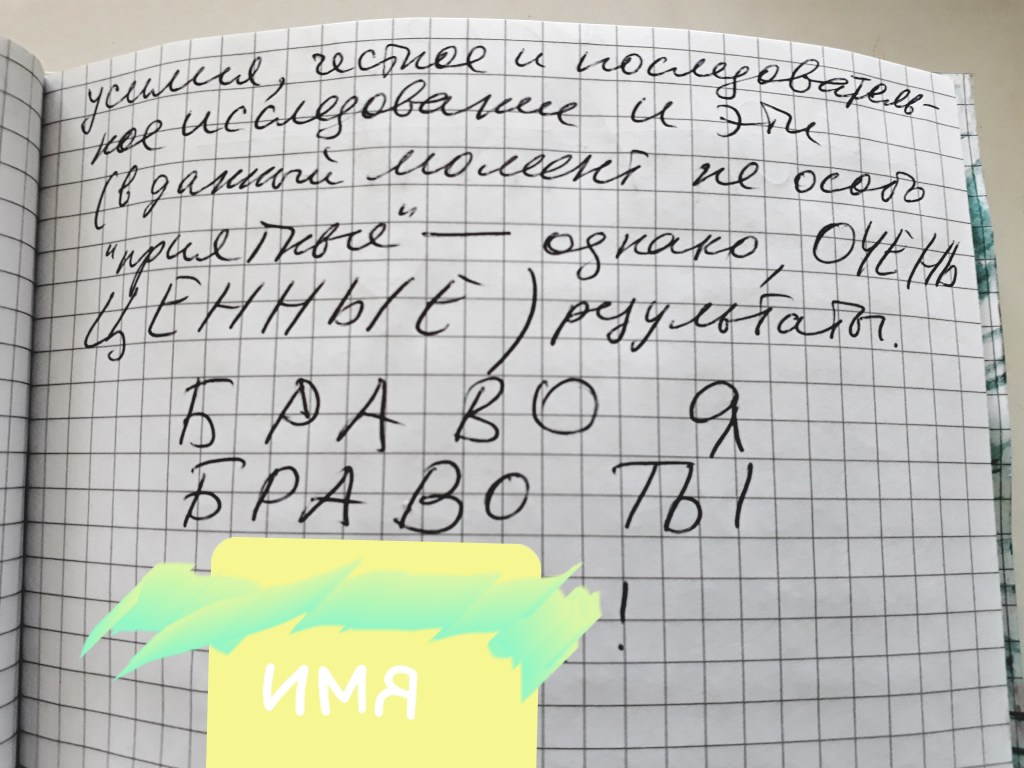 усилия, честное и последователь-
ное исследование и эти
(в данный момент не особо
"приятные" — однако, ОЧЕНЬ
ЦЕННЫЕ) результаты.
БРАВО Я
БРАВО ТЫ
!
ИМЯ